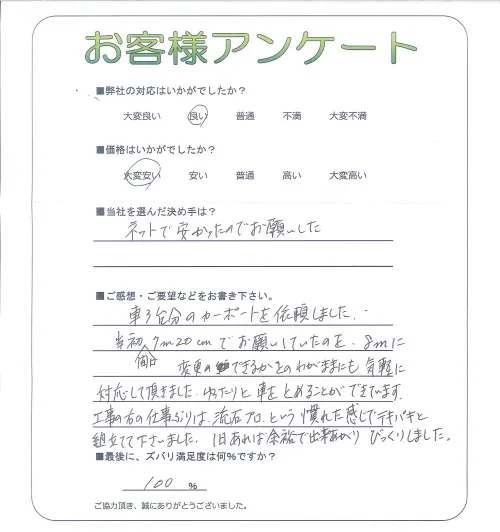 お客様アンケート
■弊社の対応はいかがでしたか?
大変良い 良い 普通 不満 大変不満
■価格はいかがでしたか?
大変安い 安い 普通 高い 大変高い
■当社を選んだ決め手は?
ネットで安かったのでお願いした
■ご感想・ご要望などをお書き下さい。
車3台分のカーポートを依頼しました.
当初、7m20cmでお願いしていたのを、8mに
変更できるかとのわがままにも気軽に
対応して頂きました. ゆったりと車をとめることができています.
工事の方の仕事ぶりは、流石プロ、という慣れた感じでテキパキと
組立てて下さいました. 1日あれば余裕で出来あがり びっくりしました。
■最後に、ズバリ満足度は何%ですか?
100 %
ご協力頂き、誠にありがとうございました。